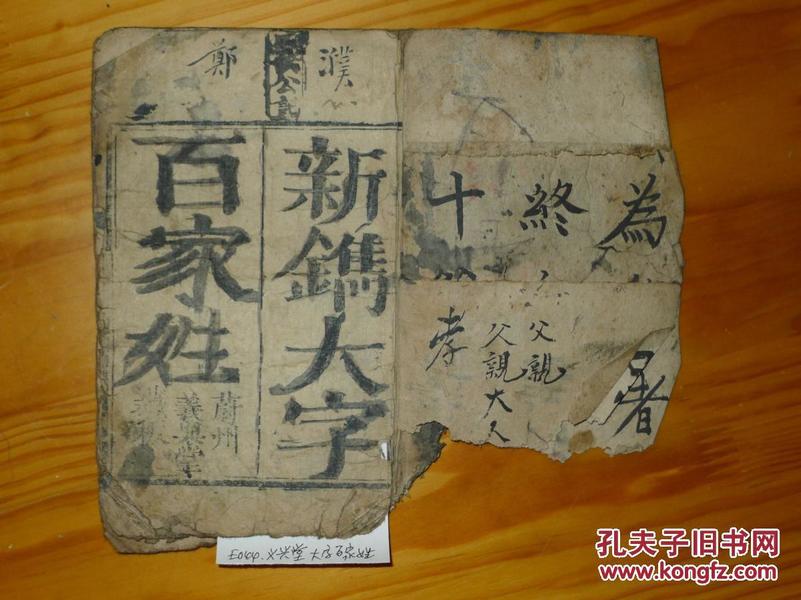 為
終
十
者
父親
父親大人
孝
濮
鄭
新鐫大字
百家姓
蔚州
義興堂
E044.义兴堂大字百家姓
孔夫子旧书网
www.kongfz.com